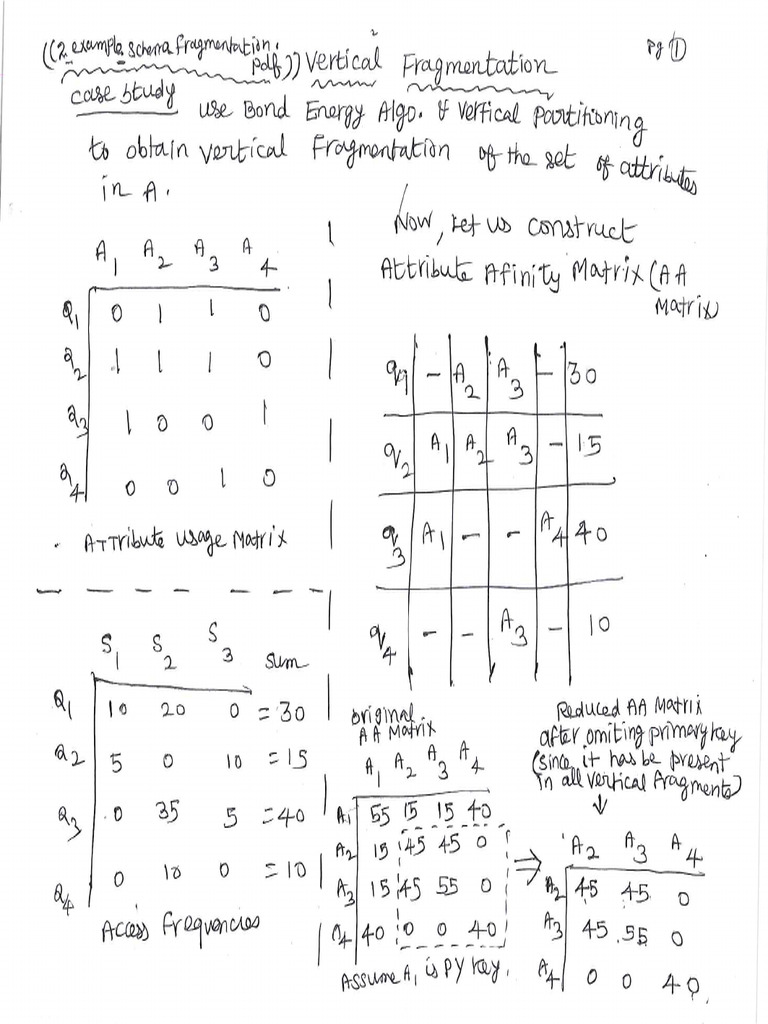 ((2 example schema fragmentation. pdf)) Vertical Fragmentation
Pg ①
case study use Bond Energy Algo. & Vertical Partitioning
to obtain vertical Fragmentation of the set of attributes
in A.
A1 A2 A3 A4
Q1 0 1 1 0
Q2 1 1 1 0
Q3 1 0 0 1
Q4 0 0 1 0
. ATTribute usage Matrix
Now, Let us construct
Attribute Afinity Matrix (AA
Matrix)
q1 - A2 A3 - 30
q2 A1 A2 A3 - 15
q3 A1 - - A4 40
q4 - - A3 - 10
S1 S2 S3 sum
Q1 10 20 0 = 30
Q2 5 0 10 = 15
Q3 0 35 5 = 40
Q4 0 10 0 = 10
Access Frequencies
original
AA Matrix
A1 A2 A3 A4
A1 55 15 15 40
A2 15 45 45 0
A3 15 45 55 0
A4 40 0 0 40
Assume A1 is PY Key.
Reduced AA Matrix
after omiting primary key
(since it has be present
in all vertical fragments)
A2 A3 A4
A2 45 45 0
A3 45 55 0
A4 0 0 40